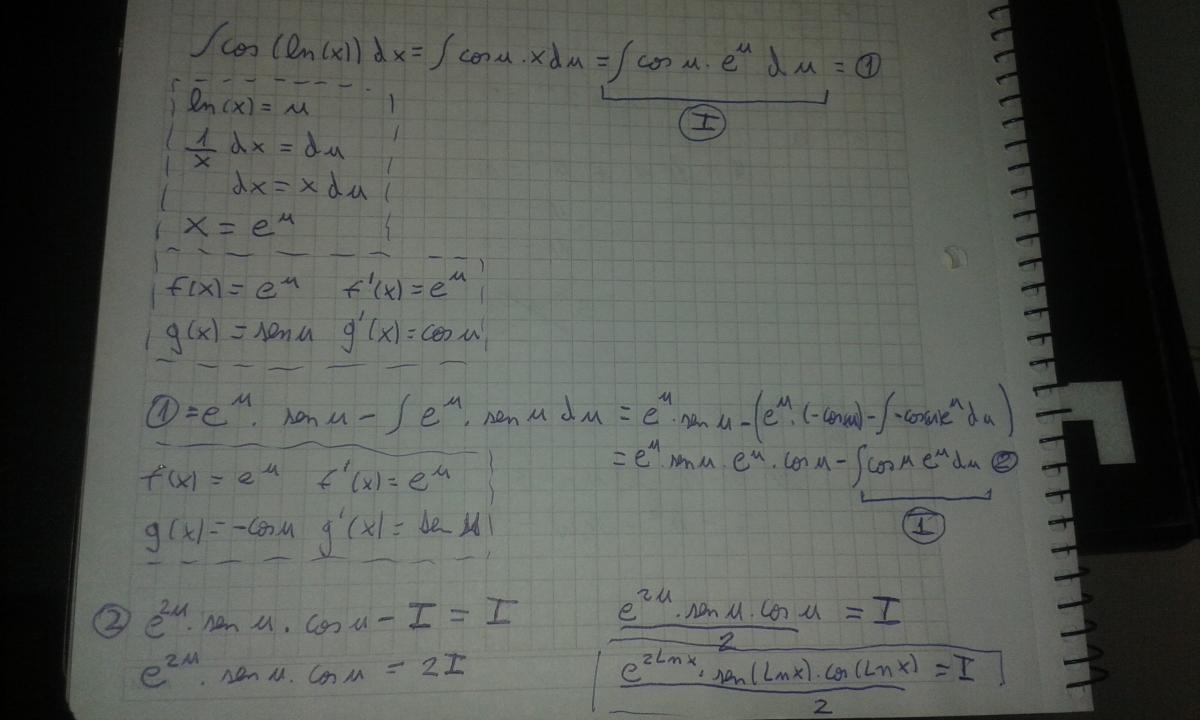 ∫cos(ln(x)) dx = ∫cos u · x du = ∫cos u · e^u du = ①
Ⓘ
ln(x) = u
1/x dx = du
dx = x du
x = e^u
f(x) = e^u f'(x) = e^u
g(x) = sen u g'(x) = cos u
① = e^u · sen u - ∫ e^u · sen u du = e^u · sen u - (e^u · (-cos u) - ∫ -cos u e^u du)
= e^u · sen u · e^u · cos u - ∫cos u e^u du ②
Ⓘ
f(x) = e^u f'(x) = e^u
g(x) = -cos u g'(x) = sen u
② e^2u · sen u · cos u - I = I
e^2u · sen u · cos u = 2I
e^2u · sen u · cos u / 2 = I
e^2Lnx · sen(Lnx) · cos(Lnx) / 2 = I